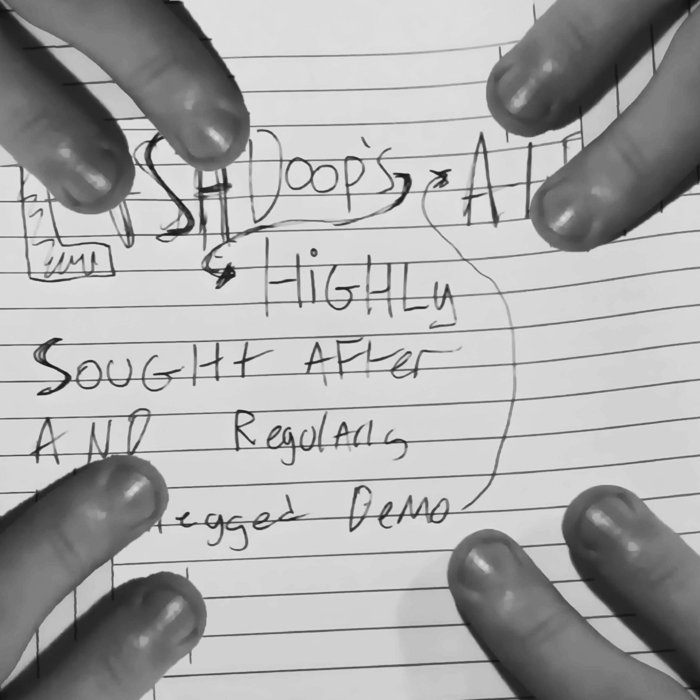 Doop's
HiGHLy
SOUGHt AFter
AND RegulArly
DeMo